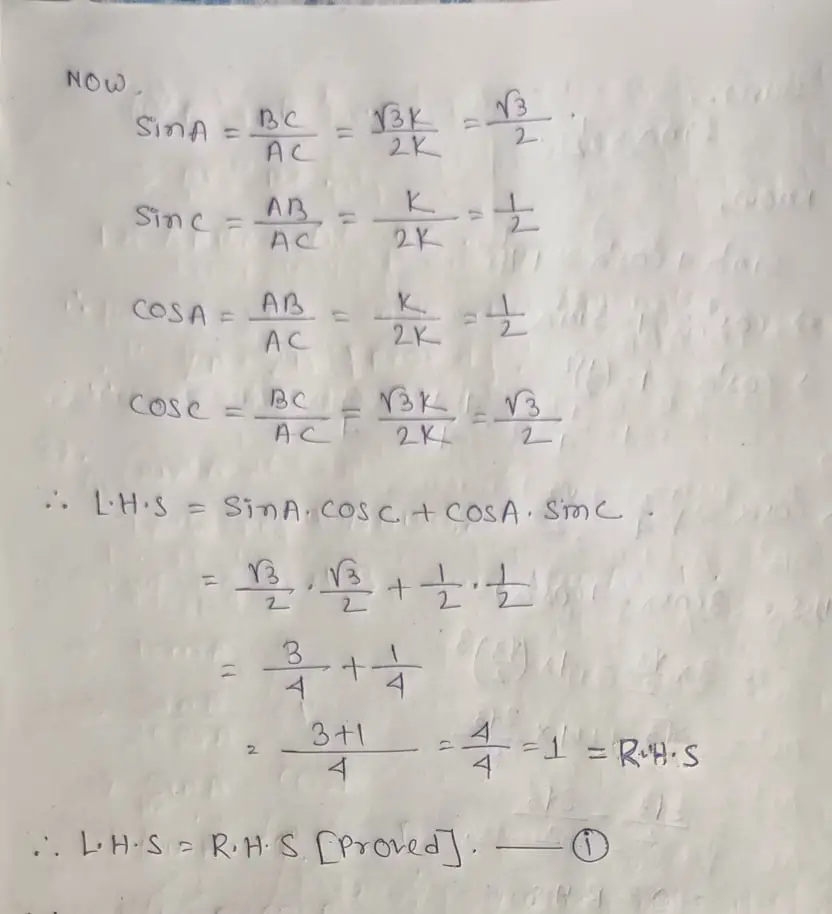 NOW,
SinA = BC/AC = √3K/2K = √3/2 .
Sinc = AB/AC = K/2K = 1/2
∴ COSA = AB/AC = K/2K = 1/2
COSC = BC/AC = √3K/2K = √3/2
∴ L.H.S = SinA. COSC + COSA. SinC .
= √3/2 . √3/2 + 1/2 . 1/2
= 3/4 + 1/4
= 3+1/4 = 4/4 = 1 = R.H.S
∴ L.H.S = R.H.S [Proved]. — ①